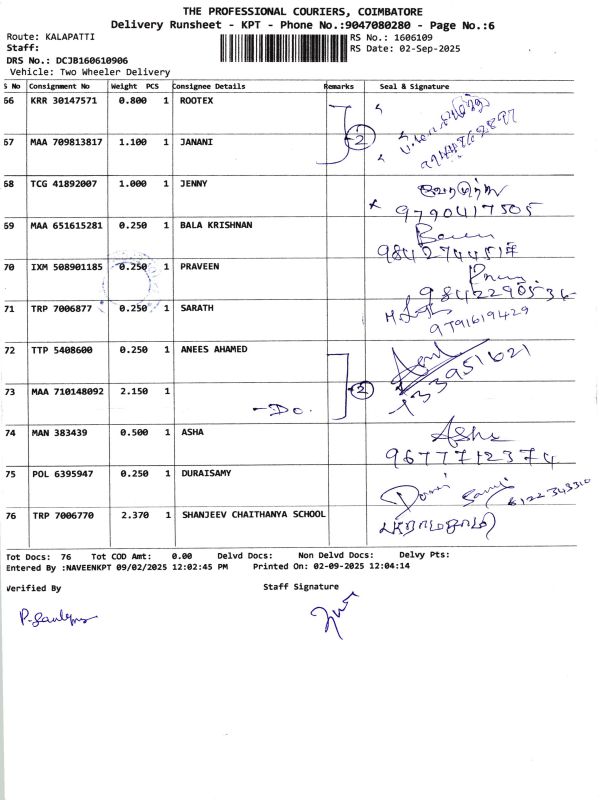 THE PROFESSIONAL COURIERS, COIMBATORE
Delivery Runsheet - KPT - Phone No.:9047080280 - Page No.:6
Route: KALAPATTI RS No.: 1606109
Staff: RS Date: 02-Sep-2025
DRS No.: DCJB160610906
Vehicle: Two Wheeler Delivery
S No Consignment No Weight PCS Consignee Details Remarks Seal & Signature
66 KRR 30147571 0.800 1 ROOTEX
67 MAA 709813817 1.100 1 JANANI 2
68 TCG 41892007 1.000 1 JENNY
9790417505
69 MAA 651615281 0.250 1 BALA KRISHNAN
70 IXM 508901185 0.250 1 PRAVEEN
9842290536
71 TRP 7006877 0.250 1 SARATH
9791619429
72 TTP 5408600 0.250 1 ANEES AHAMED
73 MAA 710148092 2.150 1 -Do. 2
74 MAN 383439 0.500 1 ASHA Asha
9677712374
75 POL 6395947 0.250 1 DURAISAMY
76 TRP 7006770 2.370 1 SHANJEEV CHAITHANYA SCHOOL
Tot Docs: 76 Tot COD Amt: 0.00 Delvd Docs: Non Delvd Docs: Delvy Pts:
Entered By :NAVEENKPT 09/02/2025 12:02:45 PM Printed On: 02-09-2025 12:04:14
Verified By Staff Signature